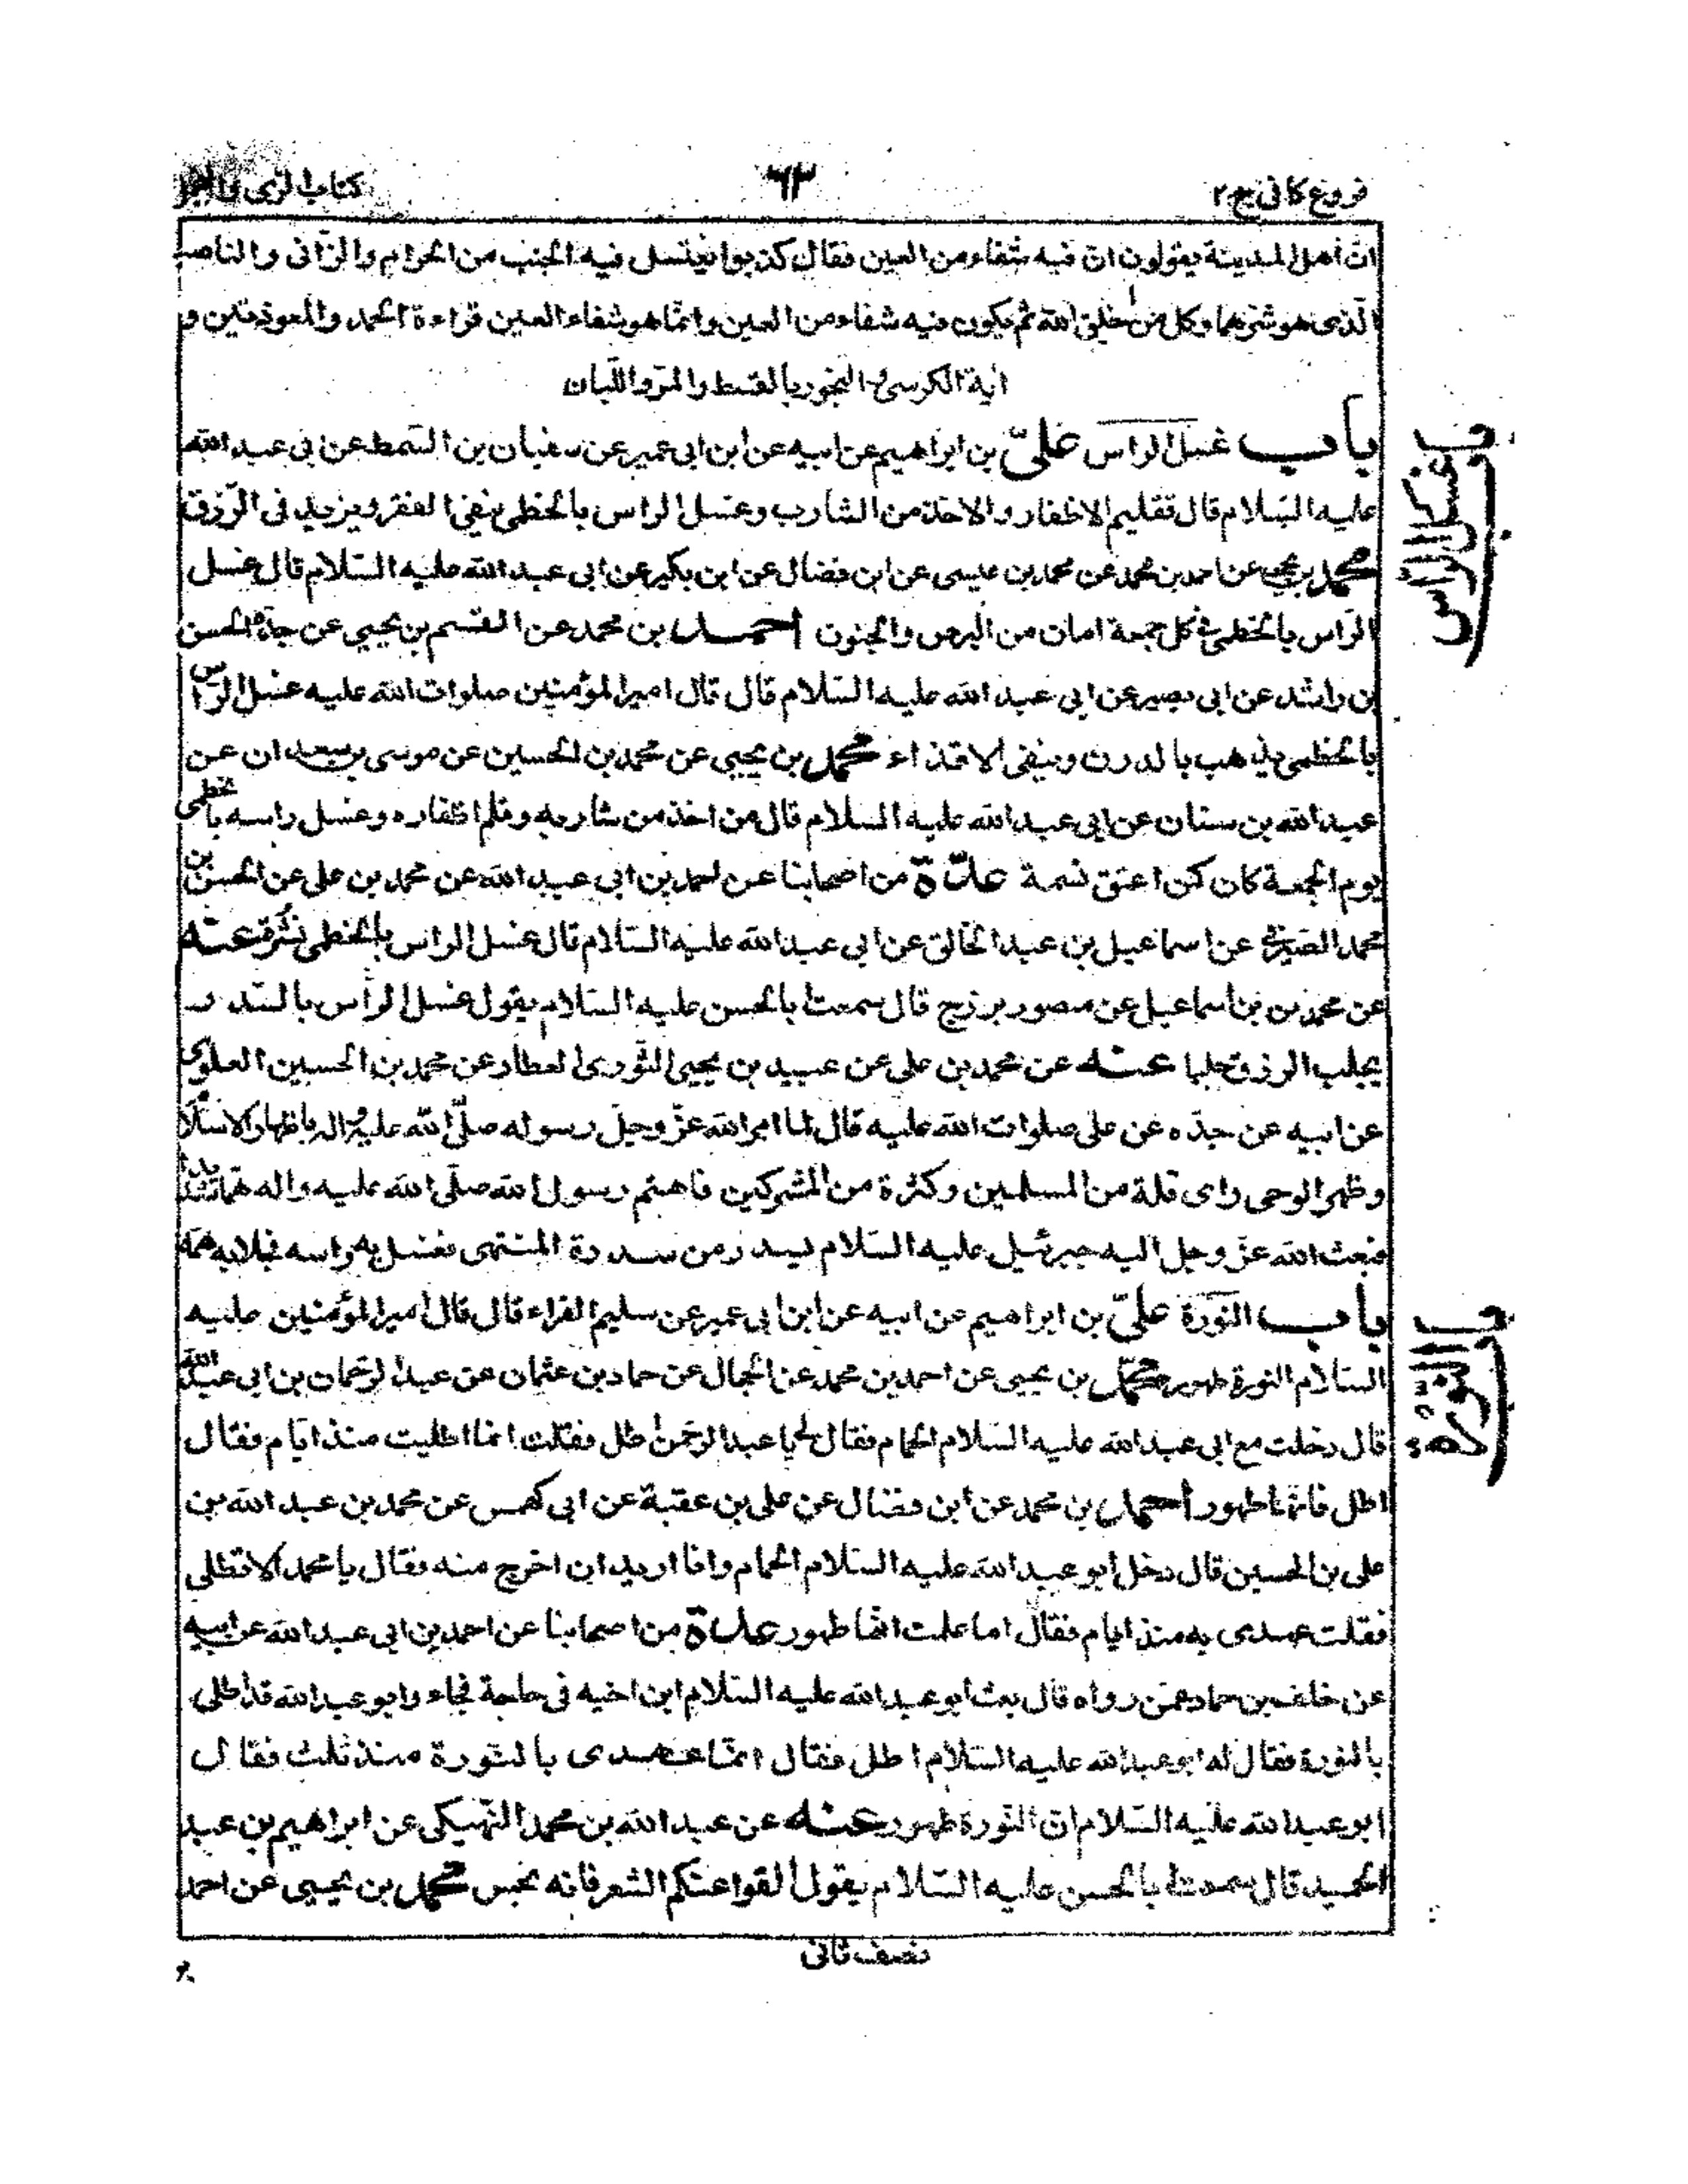 فروع كافى ج٢
٦٣
كتاب الزى والتجمل
ان اهل المدينة يقولون ان فيه شفاء من العين فقال كذبوا يغتسل فيه الجنب من الحرام والزانى والناصب
الذى هو شرهما وكل من خلق الله ثم يكون فيه شفاء من العين وانما هو شفاء العين قراءة الحمد والمعوذتين و
اية الكرسى والبخور بالقسط والمر واللبان
باب غسل الراس علىّ بن ابراهيم عن ابيه عن ابن ابى عمير عن سفيان بن السمط عن ابى عبد الله
عليه السّلام قال تقليم الاظفار والاخذ من الشارب وغسل الراس بالخطمى ينفى الفقر ويزيد فى الرّزق
محمد بن يحيى عن احمد بن محمد عن محمد بن عيسى عن ابن فضال عن ابن بكير عن ابى عبد الله عليه السّلام قال غسل
الراس بالخطمى فى كل جمعة امان من البرص والجنون احمد بن محمد عن القسم بن يحيى عن جده الحسن
بن راشد عن ابى بصير عن ابى عبد الله عليه السّلام قال قال امير المؤمنين صلوات الله عليه غسل الراس
بالخطمى يذهب بالدرن وينفى الاقذاء محمد بن يحيى عن محمد بن الحسين عن موسى بن سعدان عن
عبد الله بن سنان عن ابى عبد الله عليه السلام قال من اخذ من شاربه وقلم اظفاره وغسل راسه بالخطمى
يوم الجمعة كان كمن اعتق نسمة عدّة من اصحابنا عن احمد بن ابى عبد الله عن محمد بن على عن الحسن بن
محمد الصيرفى عن اسماعيل بن عبد الخالق عن ابى عبد الله عليه السّلام قال غسل الراس بالخطمى نشرة عنه
عن محمد بن اسماعيل عن منصور بزرج قال سمعت ابا الحسن عليه السّلام يقول غسل الراس بالسّدر
يجلب الرزق جلبا عنه عن محمد بن على عن عبيد بن يحيى الثورى العطار عن محمد بن الحسين العلوى
عن ابيه عن جدّه عن على صلوات الله عليه قال لما امر الله عزّ وجلّ رسوله صلّى الله عليه واله باظهار الاسلام
وظهر الوحى راى قلة من المسلمين وكثرة من المشركين فاهتم رسول الله صلّى الله عليه واله هما شديدا
فبعث الله عزّ وجل اليه جبرئيل عليه السّلام بسدر من سدرة المنتهى فغسل به راسه فجلا به همّه
باب النورة علىّ بن ابراهيم عن ابيه عن ابن ابى عمير عن سليم الفراء قال قال امير المؤمنين عليه
السّلام النورة طهور محمّد بن يحيى عن احمد بن محمد عن الحجال عن حماد بن عثمان عن عبد الرّحمان بن ابى عبد الله
قال دخلت مع ابى عبد الله عليه السّلام الحمام فقال لى يا عبد الرحمن اطل فقلت انما اطليت منذ ايام فقال
اطل فانها طهور احمد بن محمد عن ابن فضال عن على بن عقبة عن ابى كهمس عن محمد بن عبد الله بن
على بن الحسين قال دخل ابو عبد الله عليه السّلام الحمام وانا اريد ان اخرج منه فقال يا محمد الا تطلى
فقلت عهدى به منذ ايام فقال اما علمت انها طهور عدة من اصحابنا عن احمد بن ابى عبد الله عن ابيه
عن خلف بن حماد عمن رواه قال بعث ابو عبد الله عليه السّلام ابن اخيه فى حاجة فجاء وابو عبد الله قد اطلى
بالنورة فقال له ابو عبد الله عليه السّلام اطل فقال انما عهدى بالنّورة منذ ثلث فقال
ابو عبد الله عليه السّلام ان النّورة طهور عنه عن عبد الله بن محمد النهيكى عن ابراهيم بن عبد
الحميد قال سمعت ابا الحسن عليه السّلام يقول القوا عنكم الشعر فانه نجس محمد بن يحيى عن احمد
نصف ثانى
ف غسل الراس
ف النورة